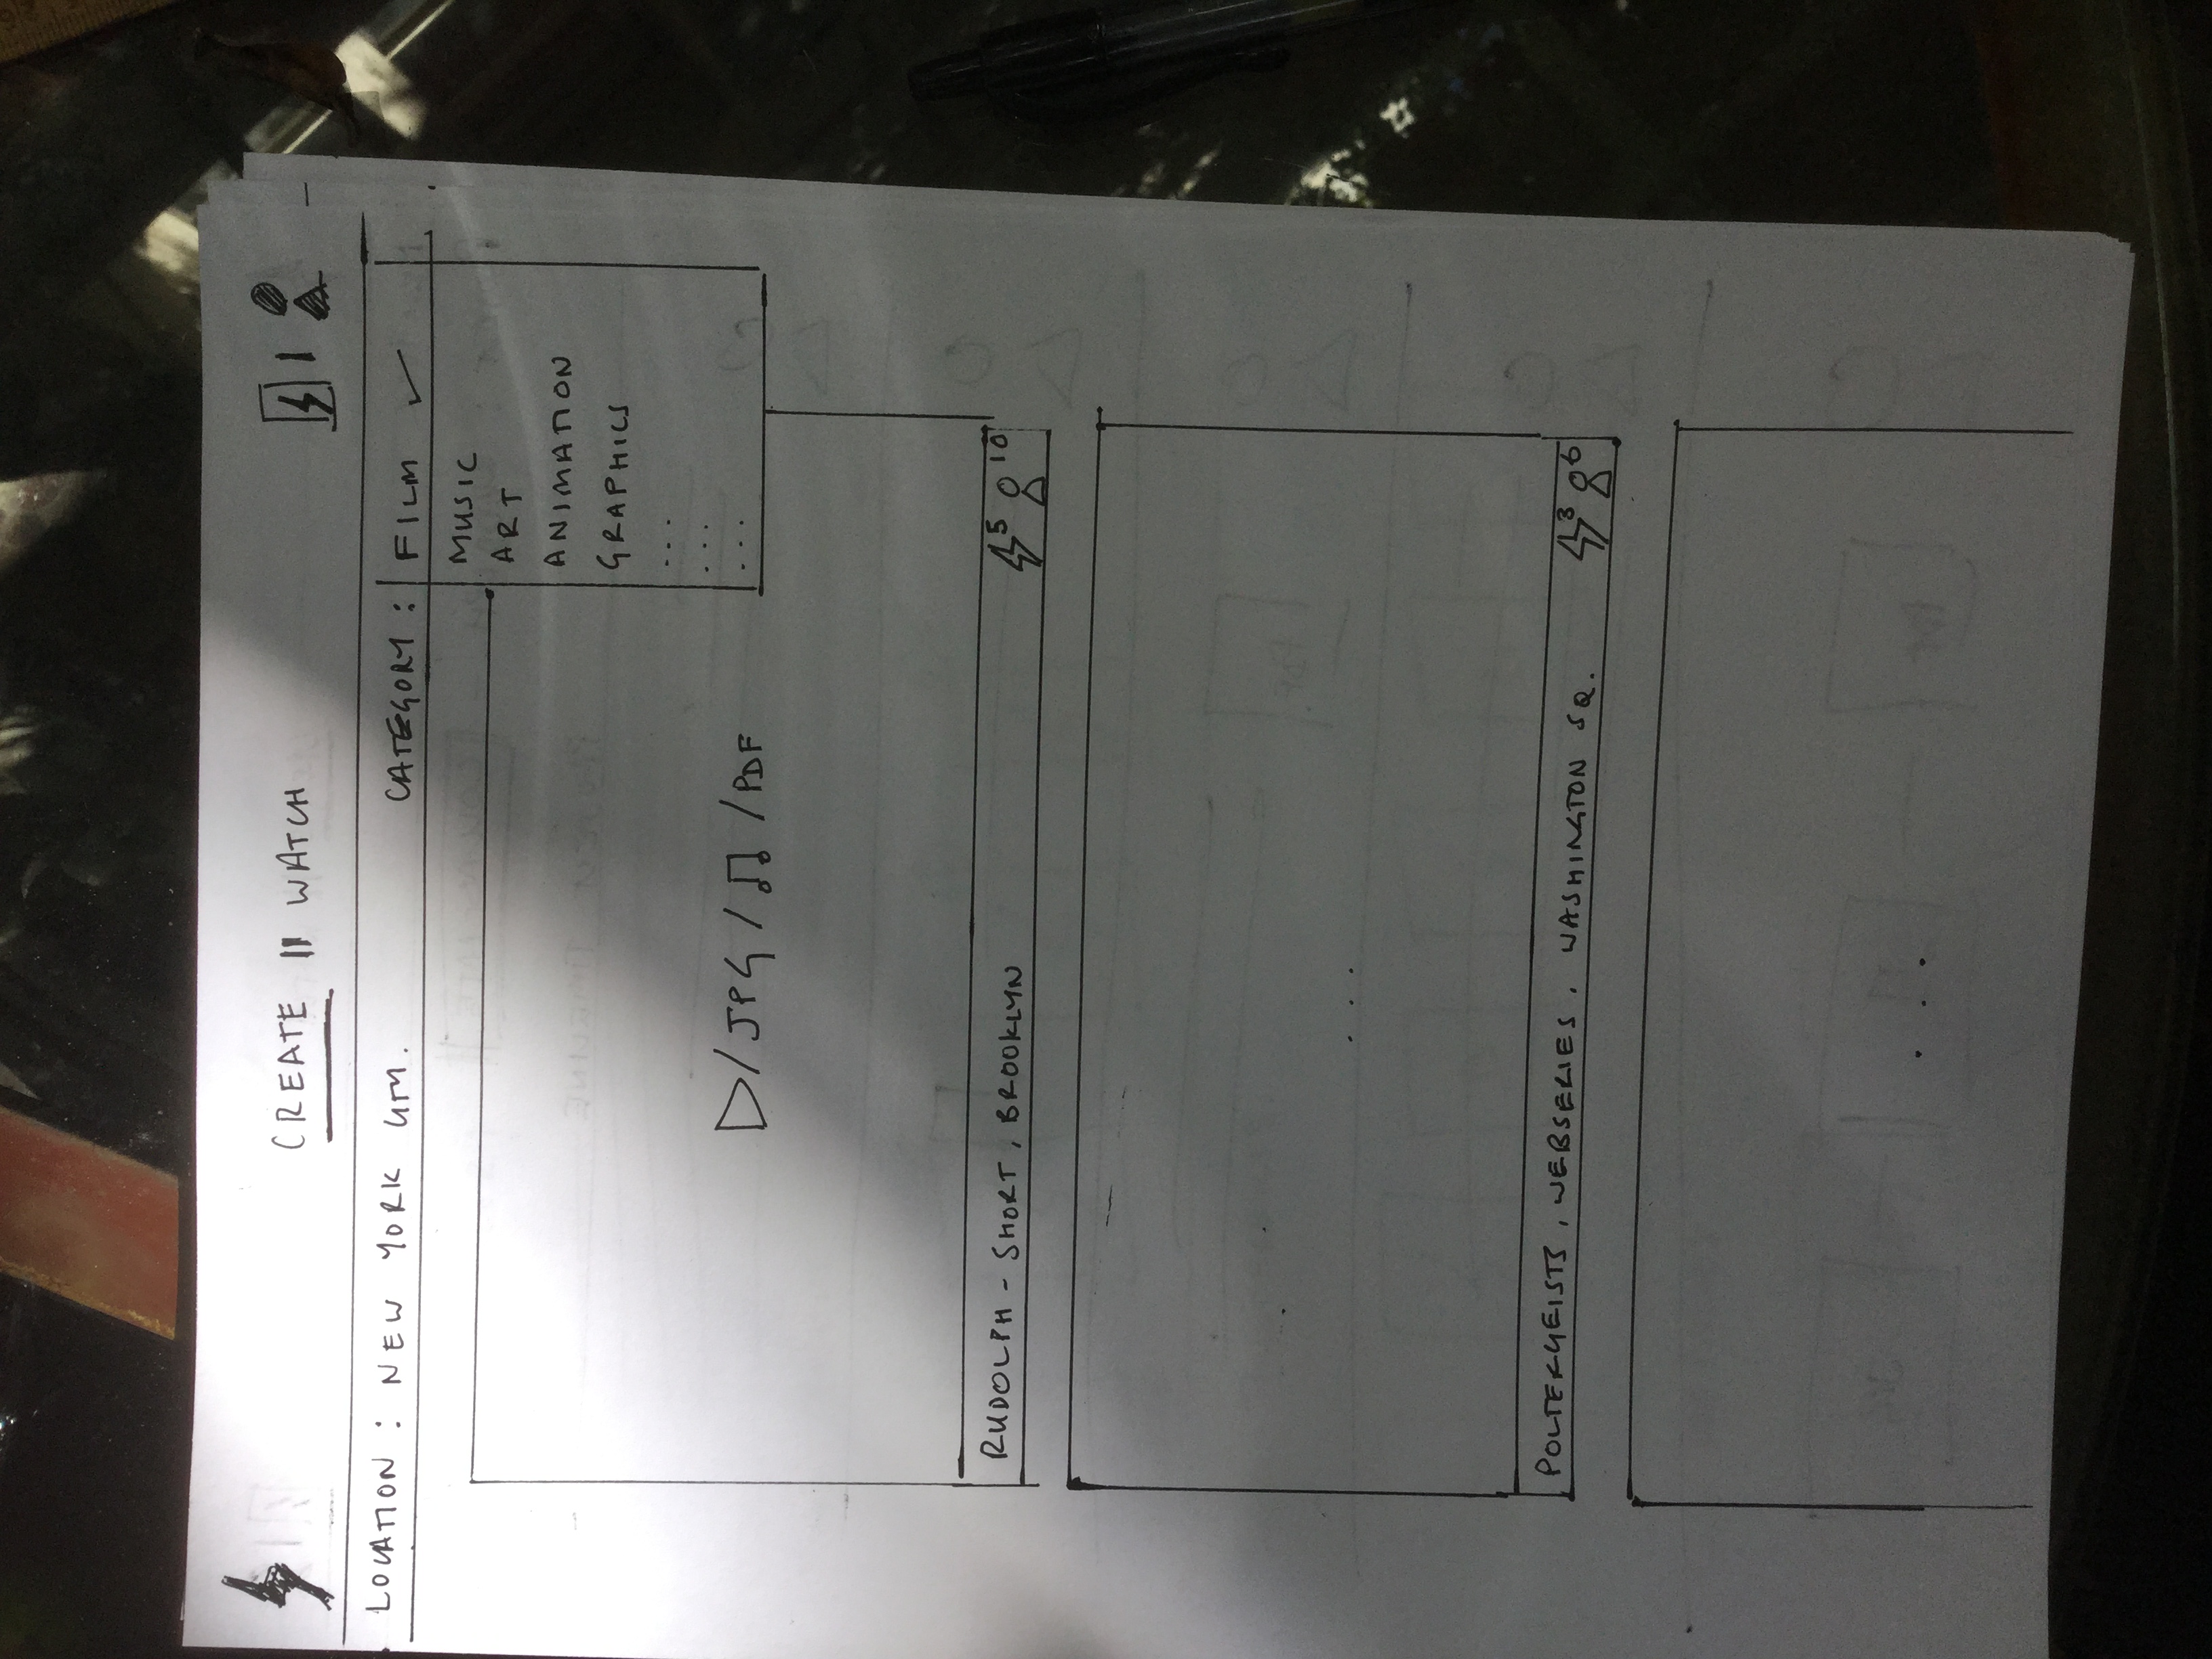 CREATE || WATCH
LOCATION : NEW YORK CITY.
CATEGORY : FILM ✓
MUSIC
ART
ANIMATION
GRAPHICS
...
...
...
/ JPG / ♫ / PDF
RUDOLPH - SHORT, BROOKLYN
5 10
...
POLTERGEISTS, WEBSERIES, WASHINGTON SQ.
3 6
...